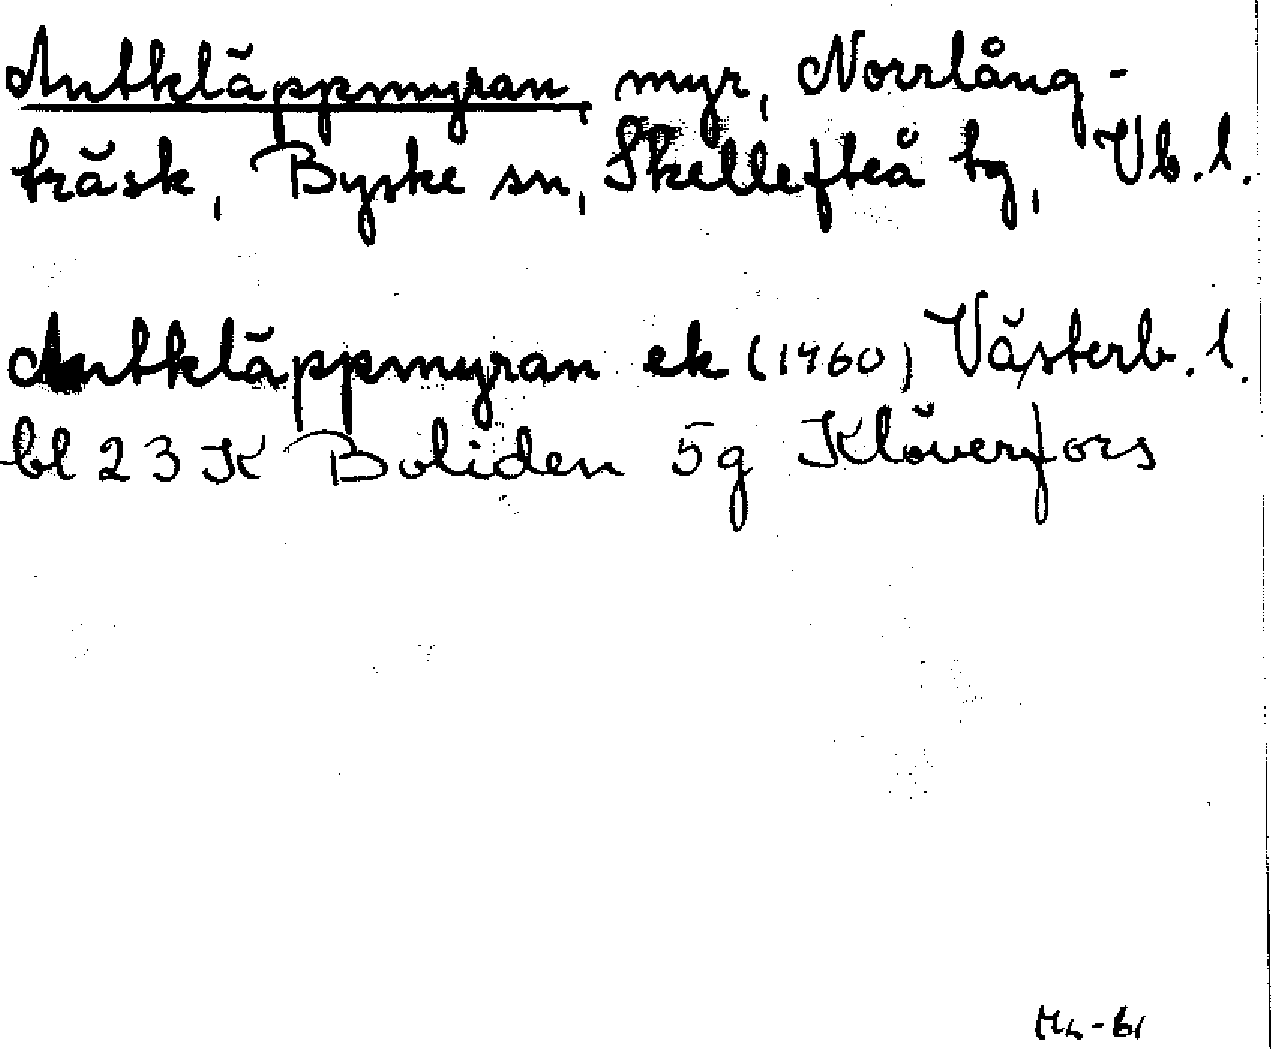 Antkläppmyran, myr, Norrlång-
träsk, Byske sn, Skellefteå tg, Vb. l.
Antkläppmyran ek (1960) Västerb. l.
bl 23 K Boliden 5g Klöverfors